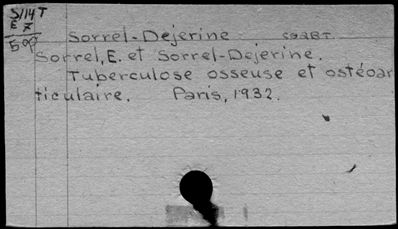 S114T
E 7
Sorrel-Dejerine
Sorrel, E. et Sorrel-Dejerine.
Tuberculose osseuse et ostéoar
ticulaire. Paris, 1932.